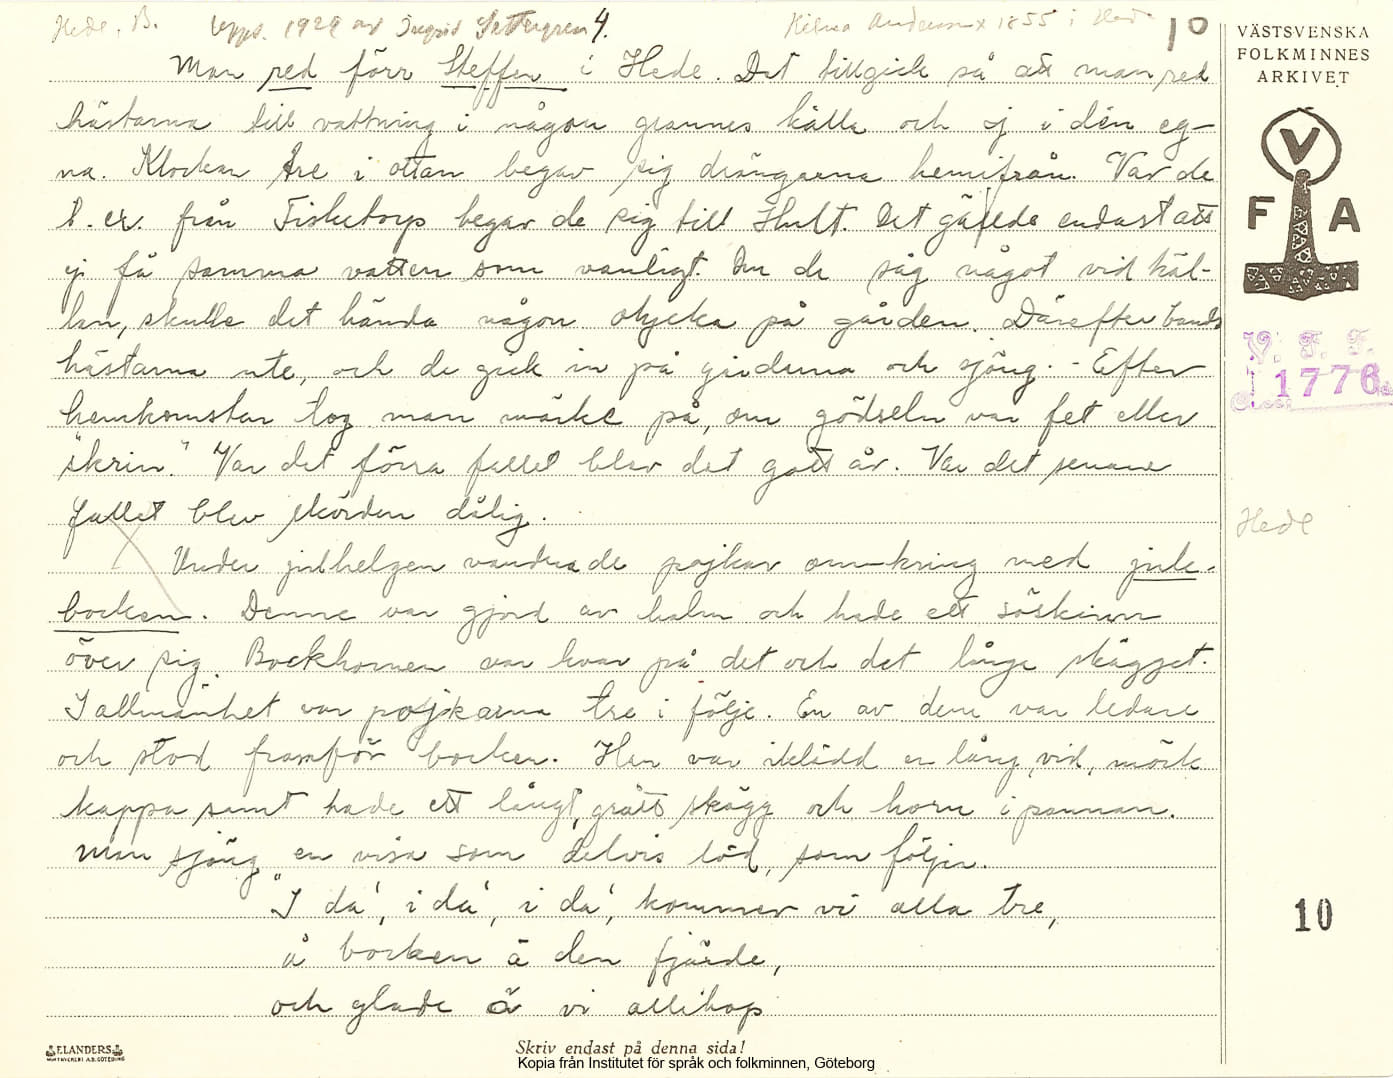 Hede. B. Upps. 1929 av Ingrid Settergren 4. Hilma Andersson x 1855 i Hede 10
Man red förr Steffen i Hede. Det tillgick så att man red
hästarna till vattning i någon grannes källa och ej i den eg-
na. Klockan tre i ottan begav sig drängarna hemifrån. Var de
t. ex. från Fisketorp begav de sig till Hult. Det gällde endast att
ej få samma vatten som vanligt. Om de såg något vid käl-
lan, skulle det hända någon olycka på gården. Därefter bands
hästarna ute, och de gick in på gårdarna och sjöng. - Efter
hemkomsten tog man märke på, om gödseln var fet eller
"skrin." Var det förra fallet blev det gott år. Var det senare
fallet blev skörden dålig.
Under julhelgen vandrade pojkar omkring med jule-
bocken. Denne var gjord av halm och hade ett fårskinn
över sig. Bockhornen var kvar på det och det långa skägget.
I allmänhet var pojkarna tre i följe. En av dem var ledare
och stod framför bocken. Han var iklädd en lång, vid, mörk
kappa samt hade ett långt, grått skägg och horn i pannan.
Man sjöng en visa som delvis löd, som följer.
"I da', i da', i da', kommer vi alla tre,
å bocken ä den fjärde,
och glada ä vi allihop
VÄSTSVENSKA
FOLKMINNES
ARKIVET
V
F A
V. F. F.
1776
Hede
10
ELANDERS
BOKTRYCKERI A.B. GÖTEBORG
Skriv endast på denna sida!
Kopia från Institutet för språk och folkminnen, Göteborg